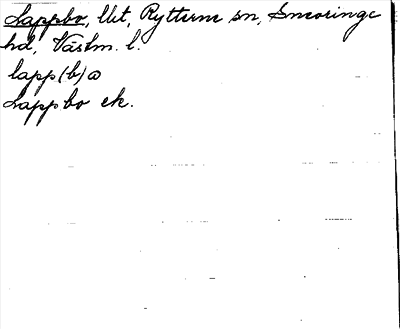 Lappbo, lht, Rytterne sn, Snevringe
hd, Västm. l.
lapp(b)ω
Lappbo ek.